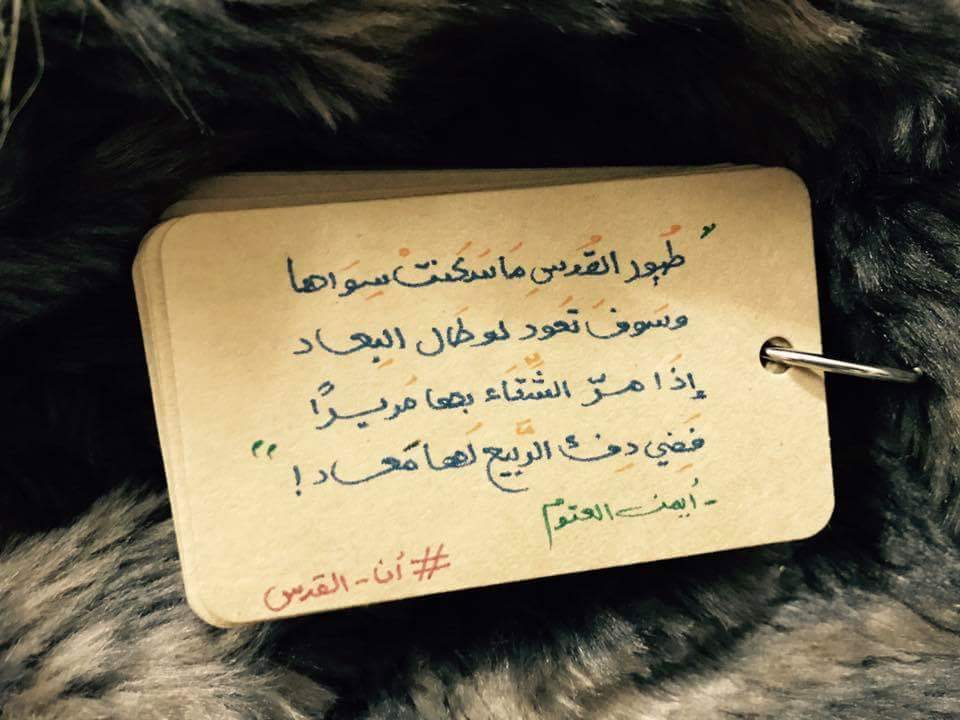 "طُيور القُدسِ مَا سَكَنتْ سِوَاها
وسَوفَ تَعود لو طَال البِعاد
إذَا مرّ الشّتَاء بها مَريرًا
فَفي دِفء الرَّبيع لَها مَعاد!"
- أيمن العتوم
#أنا-القدس